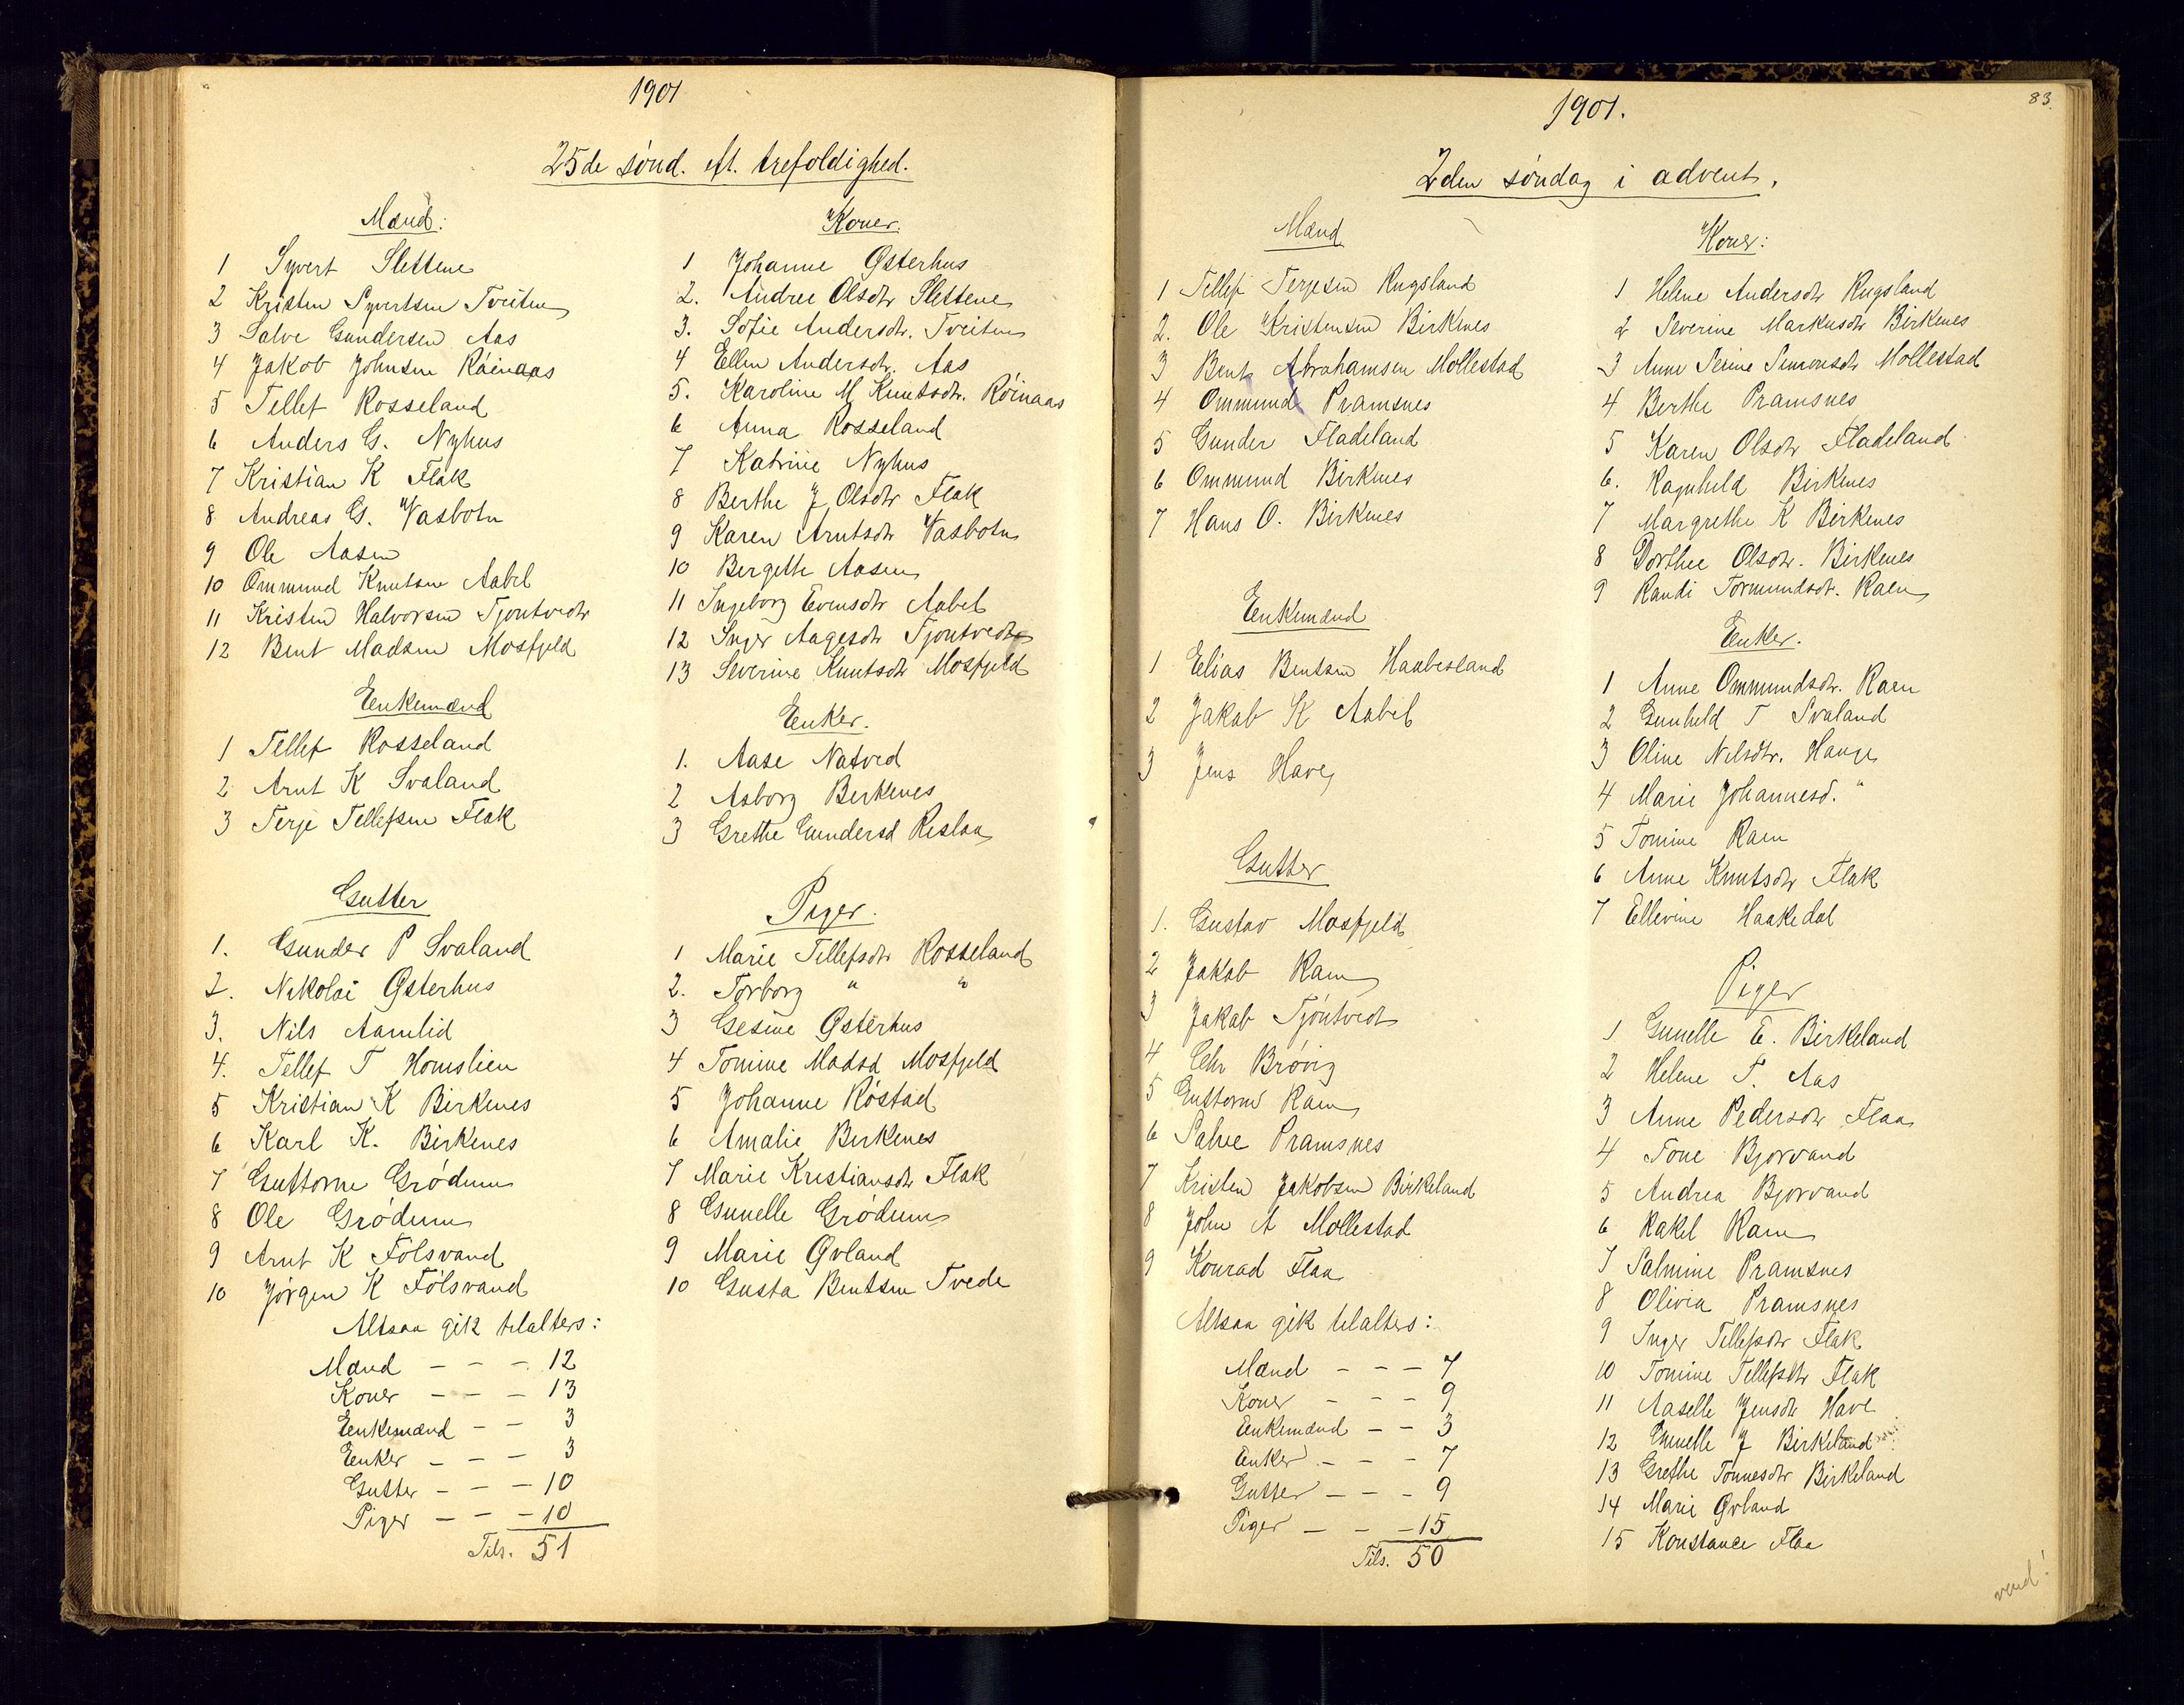 1901
25de sønd. eft. trefoldighed.
Mænd:
1 Syvert Slettene
2 Kristen Syvertsen Tveiten
3 Salve Gundersen Aas
4 Jakob Johnsen Røinaas
5 Tellef Rosseland
6 Anders G. Nyhus
7 Kristian K Flak
8 Andreas G. Vasbotn
9 Ole Aasen
10 Ommund Knutsen Aabel
11 Kristen Halvorsen Tjøntvedt
12 Bent Madsen Mosfjeld
Enkemænd
1 Tellef Rosseland
2 Arnt K Svaland
3 Terje Tellefsen Flak
Gutter
1. Gunder P Svaland
2. Nikolai Østerhus
3. Nils Aamlid
4. Tellef T Homslien
5 Kristian K Birkenes
6 Karl K. Birkenes
7 Guttorm Grødum
8 Ole Grødum
9 Arnt K Følsvand
10 Jørgen K Følsvand
Altsaa gik tilalters:
Mænd - - - 12
Koner - - - 13
Enkemænd - - 3
Enker - - - 3
Gutter - - - 10
Piger - - - 10
Tils. 51
Koner.
1 Johanne Østerhus
2. Andree Olsdtr Slettene
3. Sofie Andersdtr. Tveiten
4 Ellen Andersdtr. Aas
5. Karoline M Knutsdtr. Røinaas
6 Anna Rosseland
7 Katrine Nyhus
8 Berthe J Olsdtr Flak
9 Karen Arntsdtr Vasbotn
10 Bergitte Aasen
11 Ingeborg Evensdtr Aabel
12 Inger Aagesdtr Tjøntvedt
13 Severine Knutsdtr Mosfjeld
Enker.
1. Aase Natved
2 Asborg Birkenes
3 Grethe Gundersd Rislaa
Piger.
1 Marie Tellefsdtr Rosseland
2. Torborg " "
3 Gesine Østerhus
4 Tomine Madsd Mosfjeld
5 Johanne Røstad
6 Amalie Birkenes
7 Marie Kristiansdtr Flak
8 Gunelle Grødum
9 Marie Øvland
10 Gusta Bentsen Tvede
83.
1901.
2den søndag i advent.
Mænd
1 Tellef Terjesen Rugsland
2. Ole Kristensen Birkenes
3 Bent Abrahamsen Mollestad
4 Ommund Pramsnes
5 Gunder Fladeland
6 Ommund Birkenes
7 Hans O. Birkenes
Enkemænd
1 Elias Bentsen Haabesland
2 Jakob K Aabel
3 Jens Have
Gutter
1. Gustav Mosfjeld
2 Jakob Raen
3 Jakob Tjøntvedt
4 Chr Brøvig
5 Guttorm Raen
6 Salve Pramsnes
7 Kristen Jakobsen Birkeland
8 John A Mollestad
9 Konrad Flaa
Altsaa gik tilalters:
Mænd - - - 7
Koner - - - 9
Enkemænd - - 3
Enker - - - 7
Gutter - - - 9
Piger - - - 15
Tils. 50
Koner:
1 Helene Andersdtr Rugsland
2 Severine Markusdtr Birkenes
3 Anne Serine Simonsdtr Mollestad
4 Berthe Pramsnes
5 Karen Olsdtr Fladeland
6. Ragnhild Birkenes
7 Margrethe K Birkenes
8 Dorthee Olsdtr. Birkenes
9 Randi Tormundsdt. Raen
Enker.
1 Anne Ommundsdtr. Raen
2 Gunhild T Svaland
3 Oline Nilsdtr. Hauge
4 Marie Johannesd. "
5 Tomine Raen
6 Anne Knutsdtr Flak
7 Ellevine Haakedal
Piger
1 Gunelle E. Birkeland
2 Helene S. Aas
3 Anne Pedersdtr Flaa
4 Tone Bjorvand
5 Andrea Bjorvand
6 Rakel Raen
7 Salmine Pramsnes
8 Olivia Pramsnes
9 Inger Tellefsdtr Flak
10 Tomine Tellefsdtr Flak
11 Aaselle Jensdtr Have
12 Gunelle J Birkeland
13 Grethe Tønnesdtr Birkeland
14 Marie Øvland
15 Konstance Flaa
vend!